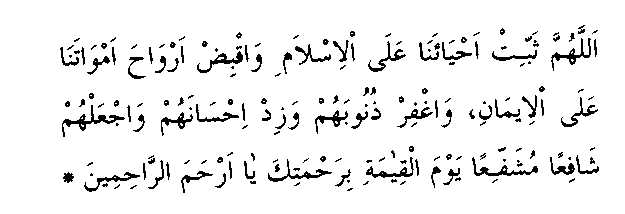 اَللَّهُمَّ ثَبِّتْ اَحْيَائَنَا عَلَى اْلاِسْلاَمِ وَاقْبِضْ اَرْوَاحَ اَمْوَاتَنَا
عَلَى اْلاِيمَانِ، وَاغْفِرْ ذُنُوبَهُمْ وَزِدْ اِحْسَانَهُمْ وَاجْعَلْهُمْ
شَافِعًا مُشَفِّعًا يَوْمَ الْقِيٰمَةِ بِرَحْمَتِكَ يٰا اَرْحَمَ الرَّاحِمِينَ *